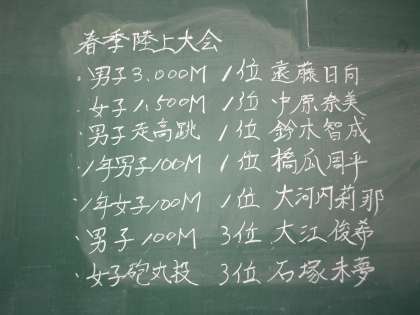 春季陸上大会
・男子3.000M 1位 遠藤日向
・女子1.500M 1位 中原奈美
・男子走高跳 1位 鈴木智成
・1年男子100M 1位 橋瓜周平
・1年女子100M 1位 大河内莉那
・男子100M 3位 大江俊希
・女子砲丸投 3位 石塚未夢